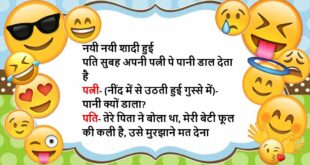 नयी नयी शादी हुई
पति सुबह अपनी पत्नी पे पानी डाल देता
है
पत्नी- (नींद में से उठती हुई गुस्से में)-
पानी क्यों डाला?
पति- तेरे पिता ने बोला था, मेरी बेटी फूल
की कली है, उसे मुरझाने मत देना